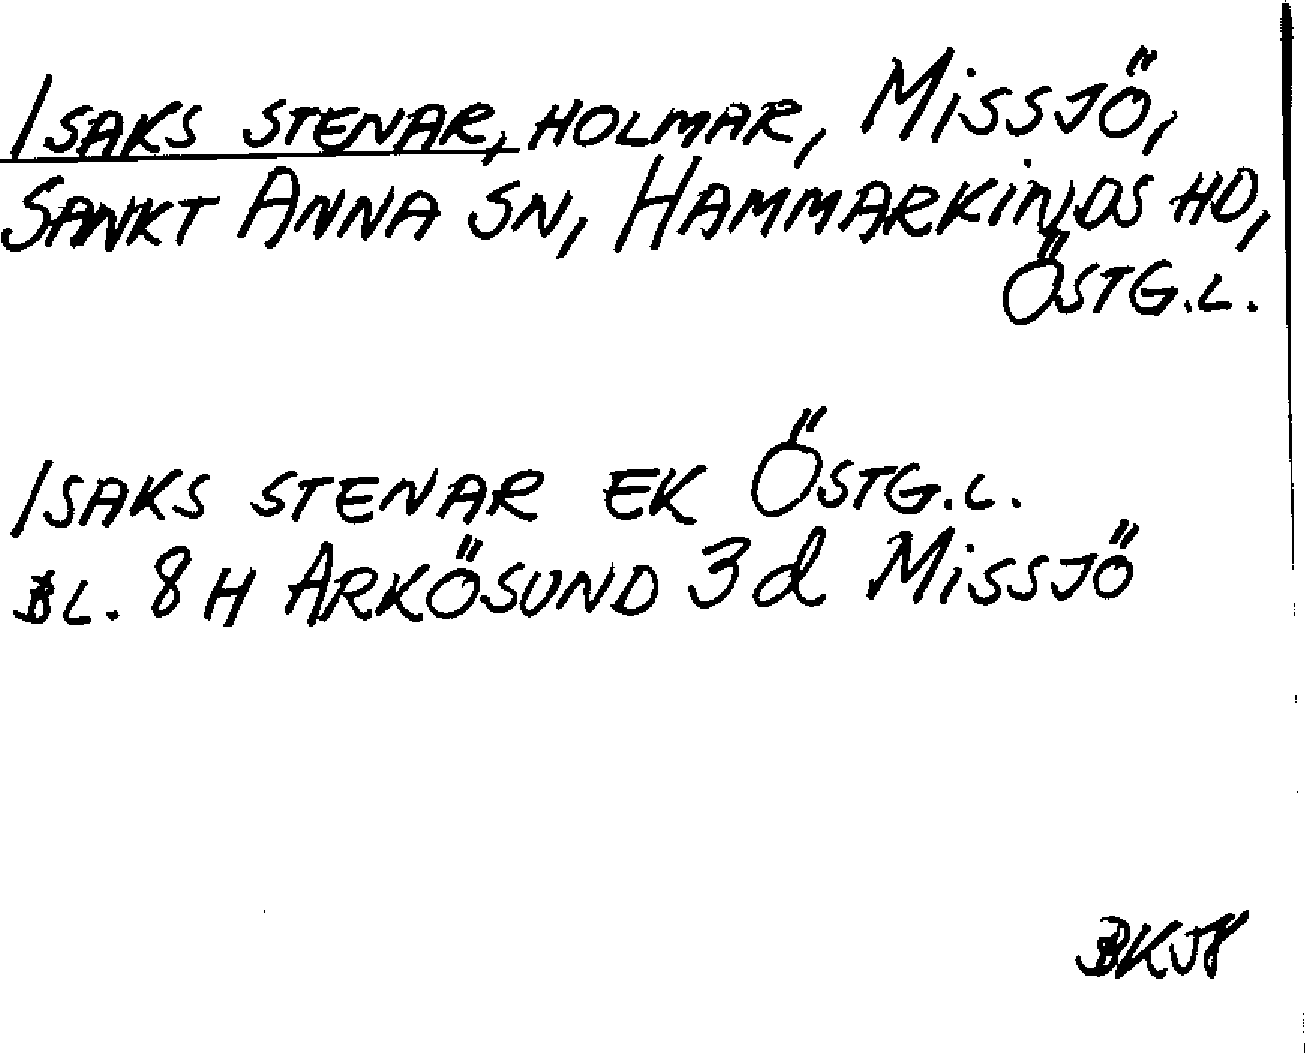 Isaks stenar, holmar, Missjö,
Sankt Anna sn, Hammarkinds hd,
Östg.l.
Isaks stenar EK Östg.l.
Bl. 8 H Arkösund 3d Missjö